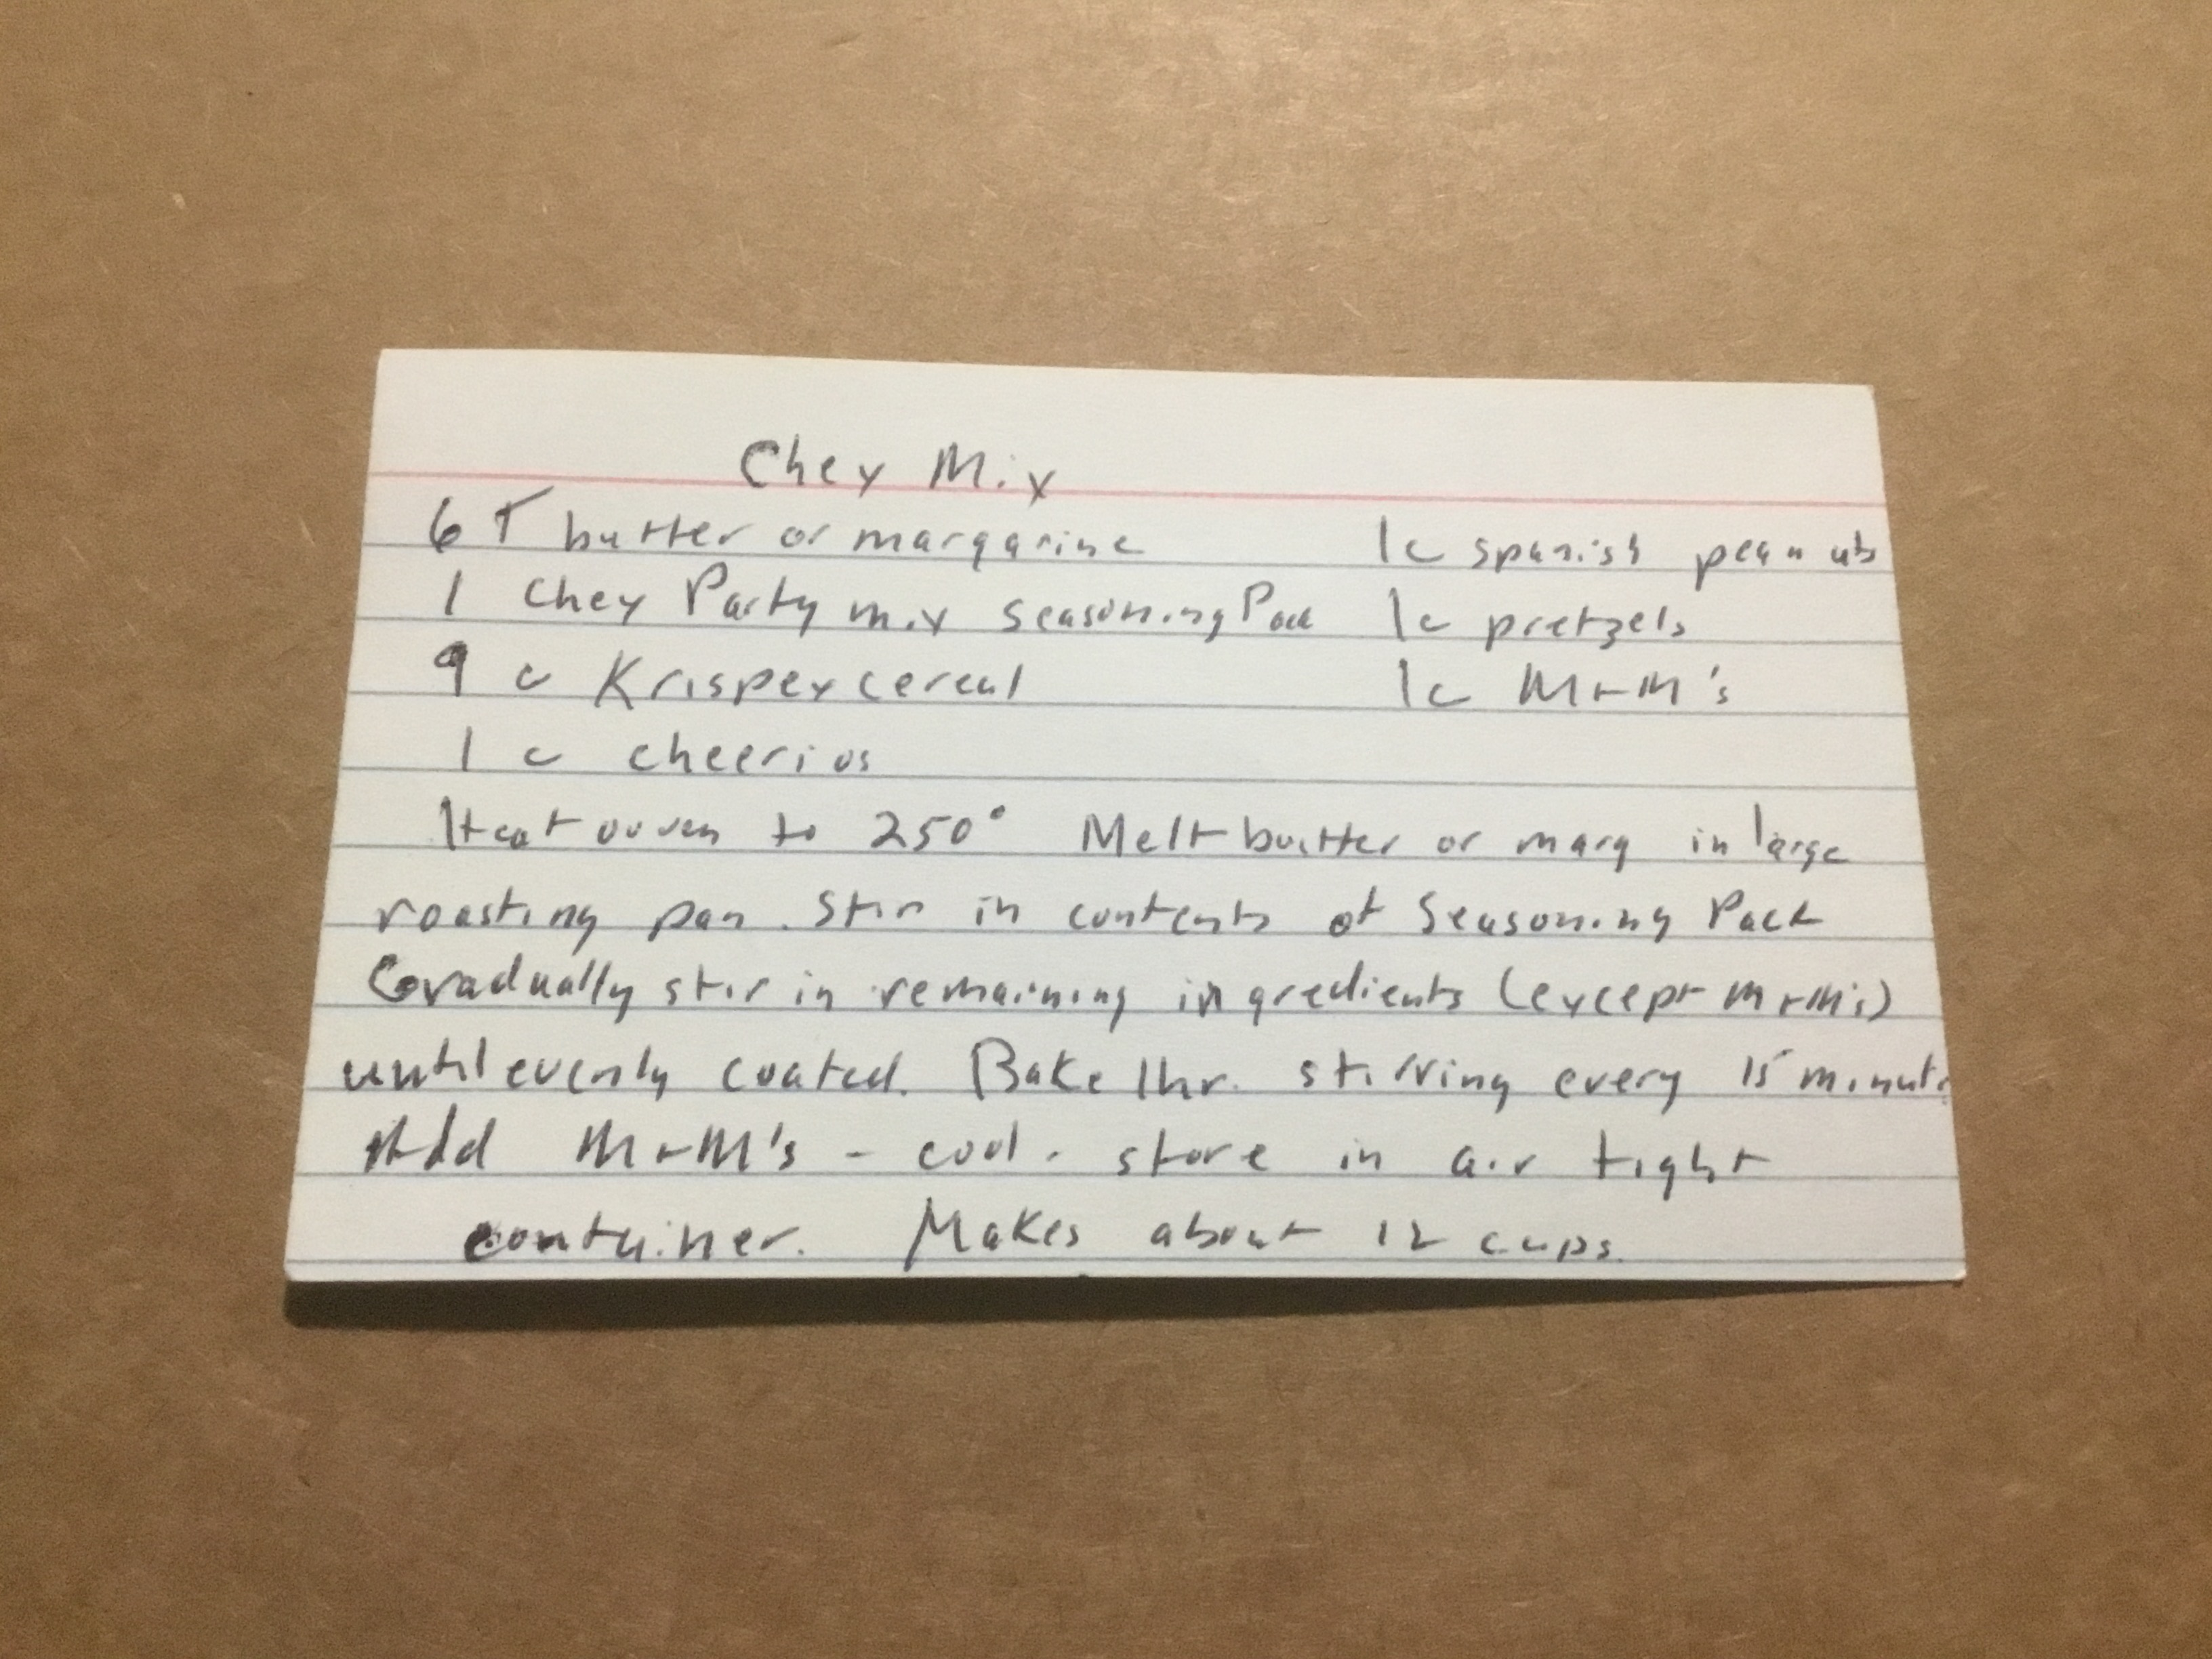 Chex Mix
6 T butter or margarine 1c spanish peanuts
1 Chex Party mix Seasoning Pack 1c pretzels
9 c Krispex cereal 1c M+M's
1 c cheerios
Heat ooven to 250° Melt butter or marg in large
roasting pan. Stir in contents of Seasoning Pack
Gradually stir in remaining ingredients (except M+M's)
until evenly coated. Bake 1hr. stirring every 15 minutes
Add M+M's - cool. store in air tight
container. Makes about 12 cups.